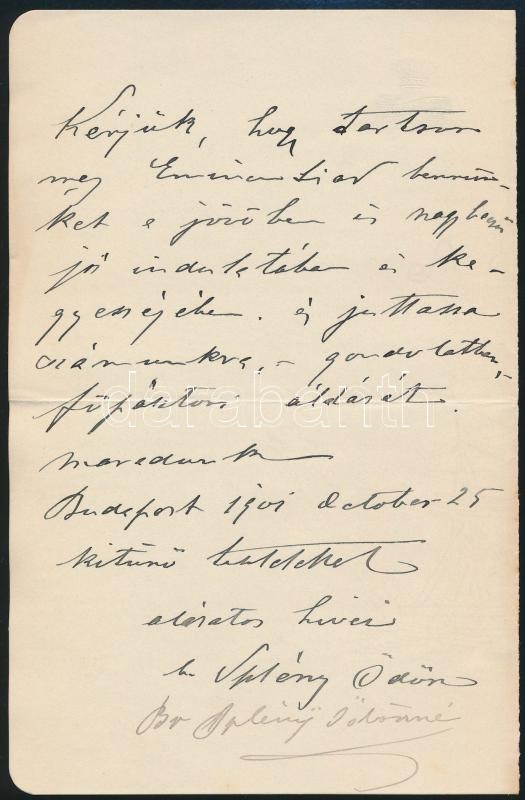 Kérjük, hogy tartson
meg Eminentiád bennün-
ket a jövőben is nagybecsü
jó indulatában és ke-
gyességében. és juttassa
számunkra, – gondolatban, –
főpásztori áldását.
maradunk
Budapest 1901 October 25
kitünő tisztelettel
alázatos hivei
b. Splény Ödön
Br Splényi Ödönné
darabanth